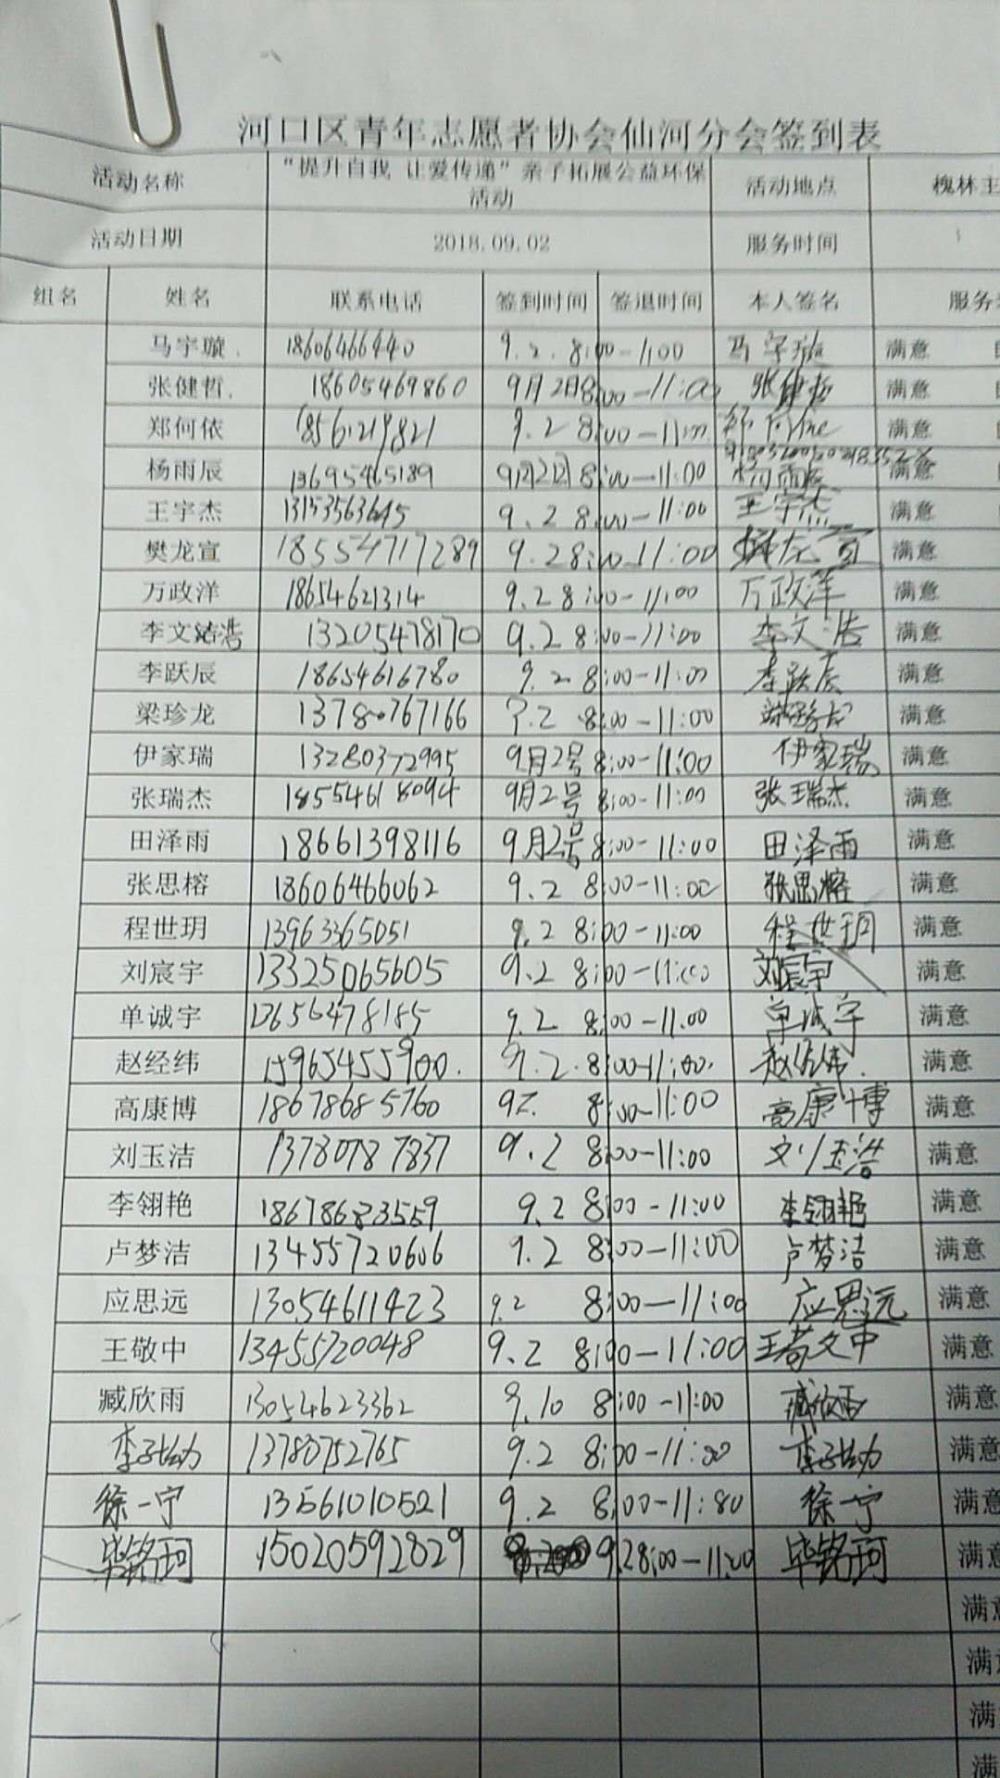 河口区青年志愿者协会仙河分会签到表
活动名称 “提升自我 让爱传递”亲子拓展公益环保活动 活动地点 槐林主
活动日期 2018.09.02 服务时间
组名 姓名 联系电话 签到时间 签退时间 本人签名 服务
马宇璇 18606466440 9.2. 8:00-11:00 马宇璇 满意
张健哲 18605469860 9月2日8:00-11:00 张健哲 满意
郑何依 18561219821 9.2 8:00-11:00 郑何依 满意
杨雨辰 13695465189 9月2日 8:00-11:00 杨雨辰 满意
王宇杰 9.2 8:00-11:00 王宇杰 满意
樊龙宣 18554717289 9.2 8:00-11:00 樊龙宣 满意
万政洋 18654621314 9.2 8:00-11:00 万政洋 满意
李文浩 13205478170 9.2 8:00-11:00 李文浩 满意
李跃辰 18654616780 9.2 8:00-11:00 李跃辰 满意
梁珍龙 13780767166 9.2 8:00-11:00 满意
伊家瑞 13280372995 9月2号 8:00-11:00 伊家瑞 满意
张瑞杰 18554618094 9月2号 8:00-11:00 张瑞杰 满意
田泽雨 18661398116 9月2号 8:00-11:00 田泽雨 满意
张思榕 18606466062 9.2 8:00-11:00 张思榕 满意
程世玥 13963365051 9.2 8:00-11:00 程世玥 满意
刘宸宇 13325065605 9.2 8:00-11:00 刘宸宇 满意
单诚宇 13656478185 9.2 8:00-11:00 单诚宇 满意
赵经纬 15965455900. 9.2. 8:00-11:00. 赵经纬. 满意
高康博 18678685760 9.2. 8:00-11:00 高康博 满意
刘玉洁 13780787837 9.2 8:00-11:00 刘玉洁 满意
李翎艳 18678683559 9.2 8:00-11:00 李翎艳 满意
卢梦洁 13455720606 9.2 8:00-11:00 卢梦洁 满意
应思远 13054611423 9.2 8:00-11:00 应思远 满意
王敬中 13455720048 9.2 8:00-11:00 王敬中 满意
臧欣雨 13054623362 9.10 8:00-11:00 臧欣雨 满意
李子劫 13780752765 9.2 8:00-11:00 李子劫 满意
徐一宁 13561010521 9.2 8:00-11:80 徐一宁 满意
毕铭珂 15020592829 9.2 8:00-11:00 毕铭珂 满意
满意
满意
满意
满意